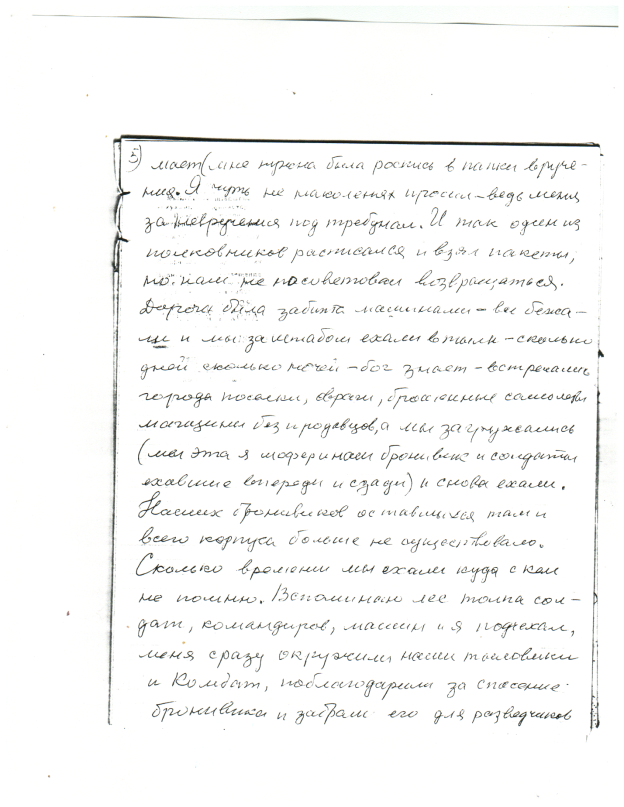 5) мает (мне нужна была роспись в папки вруче-
ния. Я чуть не на коленях просил – ведь меня
за невручения под требунал. И так один из
полковников расписался и взял пакеты,
но нам не посоветовал возвращаться.
Дорога была забита машинами – все бежа-
ли и мы за штабом ехали в тыл – сколько
дней сколько ночей – бог знает – встречались
города поселки, овраги, брошенные самолеты
магазины без продавцов, а мы загружались
(мы эта я шофер и наш броневик и солдаты
ехавшие впереди и сзади) и снова ехали.
Наших броневиков оставшихся там и
всего корпуса больше не существовало.
Сколько времени мы ехали куда с кем
не помню. Вспоминаю лес толпа сол-
дат, командиров, машин и я подъехал,
меня сразу окружили наши тыловики
и Комбат, поблагодарили за спасение
броневика и забрали его для разведчиков